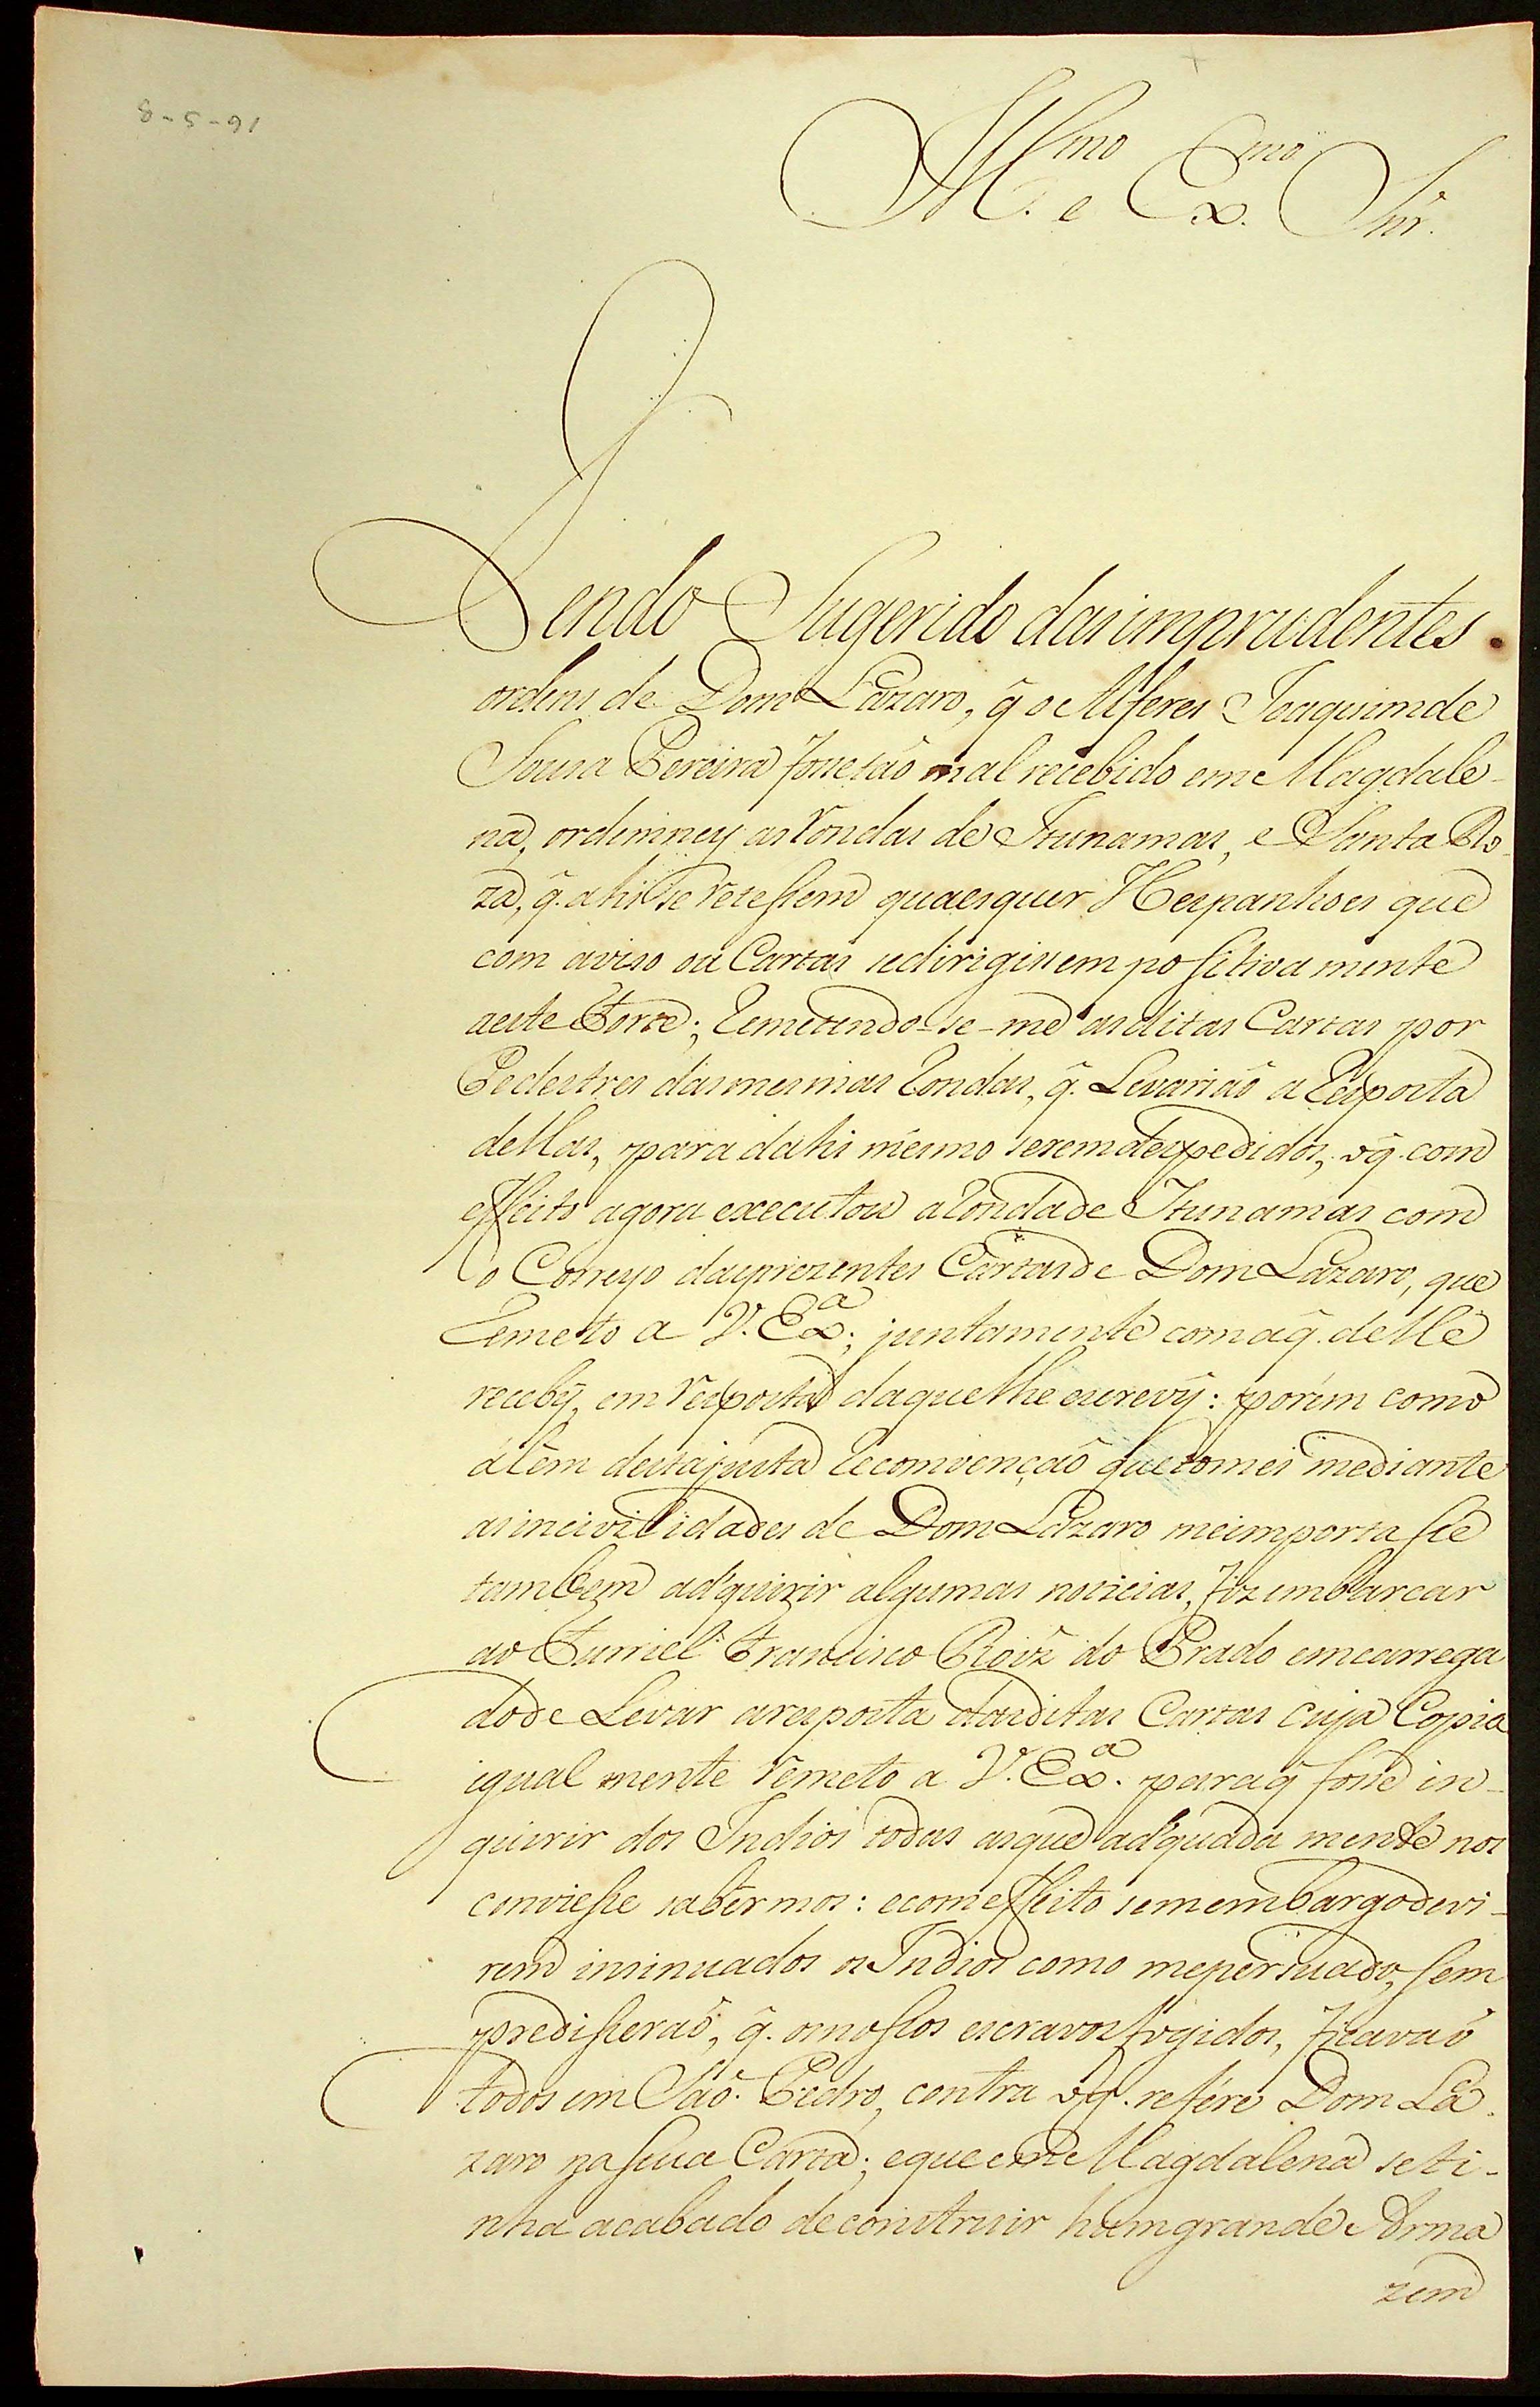 16-5-8
Ill.mo e Ex.mo Snr.
Sendo Sugerido das imprudentes
ordens de Dom Lazaro, q̃ o Alferes Joaquim de
Sousa Pereira fosse taõ mal recebido em Magdale-
na, ordenney as rondas de Itunamas, e Santa Ro-
za, q̃. ahi se retessem quaesquer Hespanhoes que
com aviso ou Cartas se dirigissem positivamente
a este Forte; remetendo-se-me as ditas Cartas por
Pedestres das mesmas rondas, q̃. Levariaõ a resposta
dellas, para dahi mesmo serem despedidos, o q̃. com
effeito agora executou a ronda de Itunamas com
o Correyo das prezentes Cartas de Dom Lazaro, que
remeto a V. Ex.a; juntamente com a q̃. delle
receby, em resposta da que lhe escrevy: porém como
álem desta justa reconvençaõ que tomei mediante
as incivilidades de Dom Lazaro me importasse
tambem adquirir algumas noticias, fiz embarcar
ao Furriel Francisco Roiz do Prado emcarrega
do de Levar a resposta das ditas Cartas cuja Copia
igualmente remeto a V. Ex.a. para q̃ fosse in-
quirir dos Indios todas as que adquadamente nos
conviesse sabermos: e com effeito sem embargo de vi-
rem insinuados os Indios como me persuado, sem
pre disseraõ, q̃. o nossos escravos fogidos, ficavaõ
todos em Saõ. Pedro, contra o q̃. refére Dom La-
zaro na sua Carta; e que em Magdalena se ti-
nha acabado de construir hum grande Arma
zem